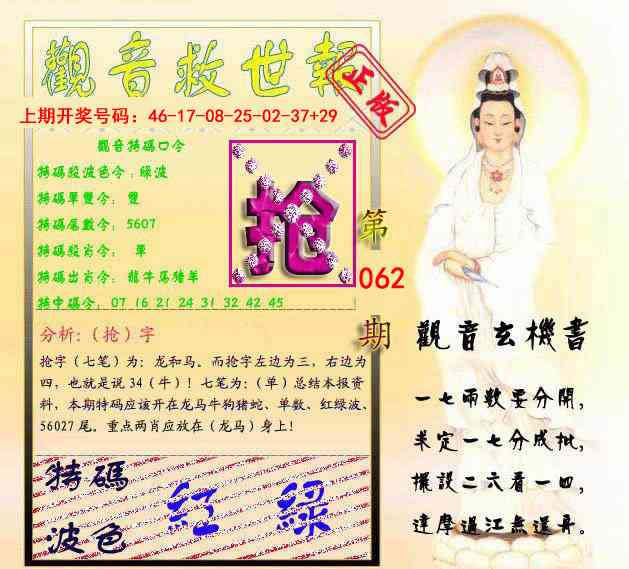 觀音救世報
正版
上期开奖号码：46-17-08-25-02-37+29
觀音特碼口令
特碼段波色令：綠波
特碼單雙令： 雙
特碼尾數令： 5607
特碼段肖令： 單
特碼出肖令： 龍牛馬豬羊
特中碼令： 07 16 21 24 31 32 42 45
抢
第
062
期
分析:（抢）字
抢字（七笔）为：龙和马。而抢字左边为三，右边为
四，也就是说 34（牛）！七笔为：（单）总结本报资
料，本期特码应该开在龙马牛狗猪蛇、单数、红绿波、
56027 尾。重点两肖应放在（龙马）身上！
特碼
波色
紅 綠
觀音玄機書
一七兩數要分開，
求定一七分成批，
擺設二六看一四，
達摩過江無選哥。